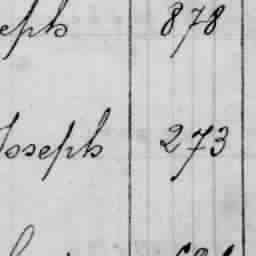 eph 878
Joseph 273